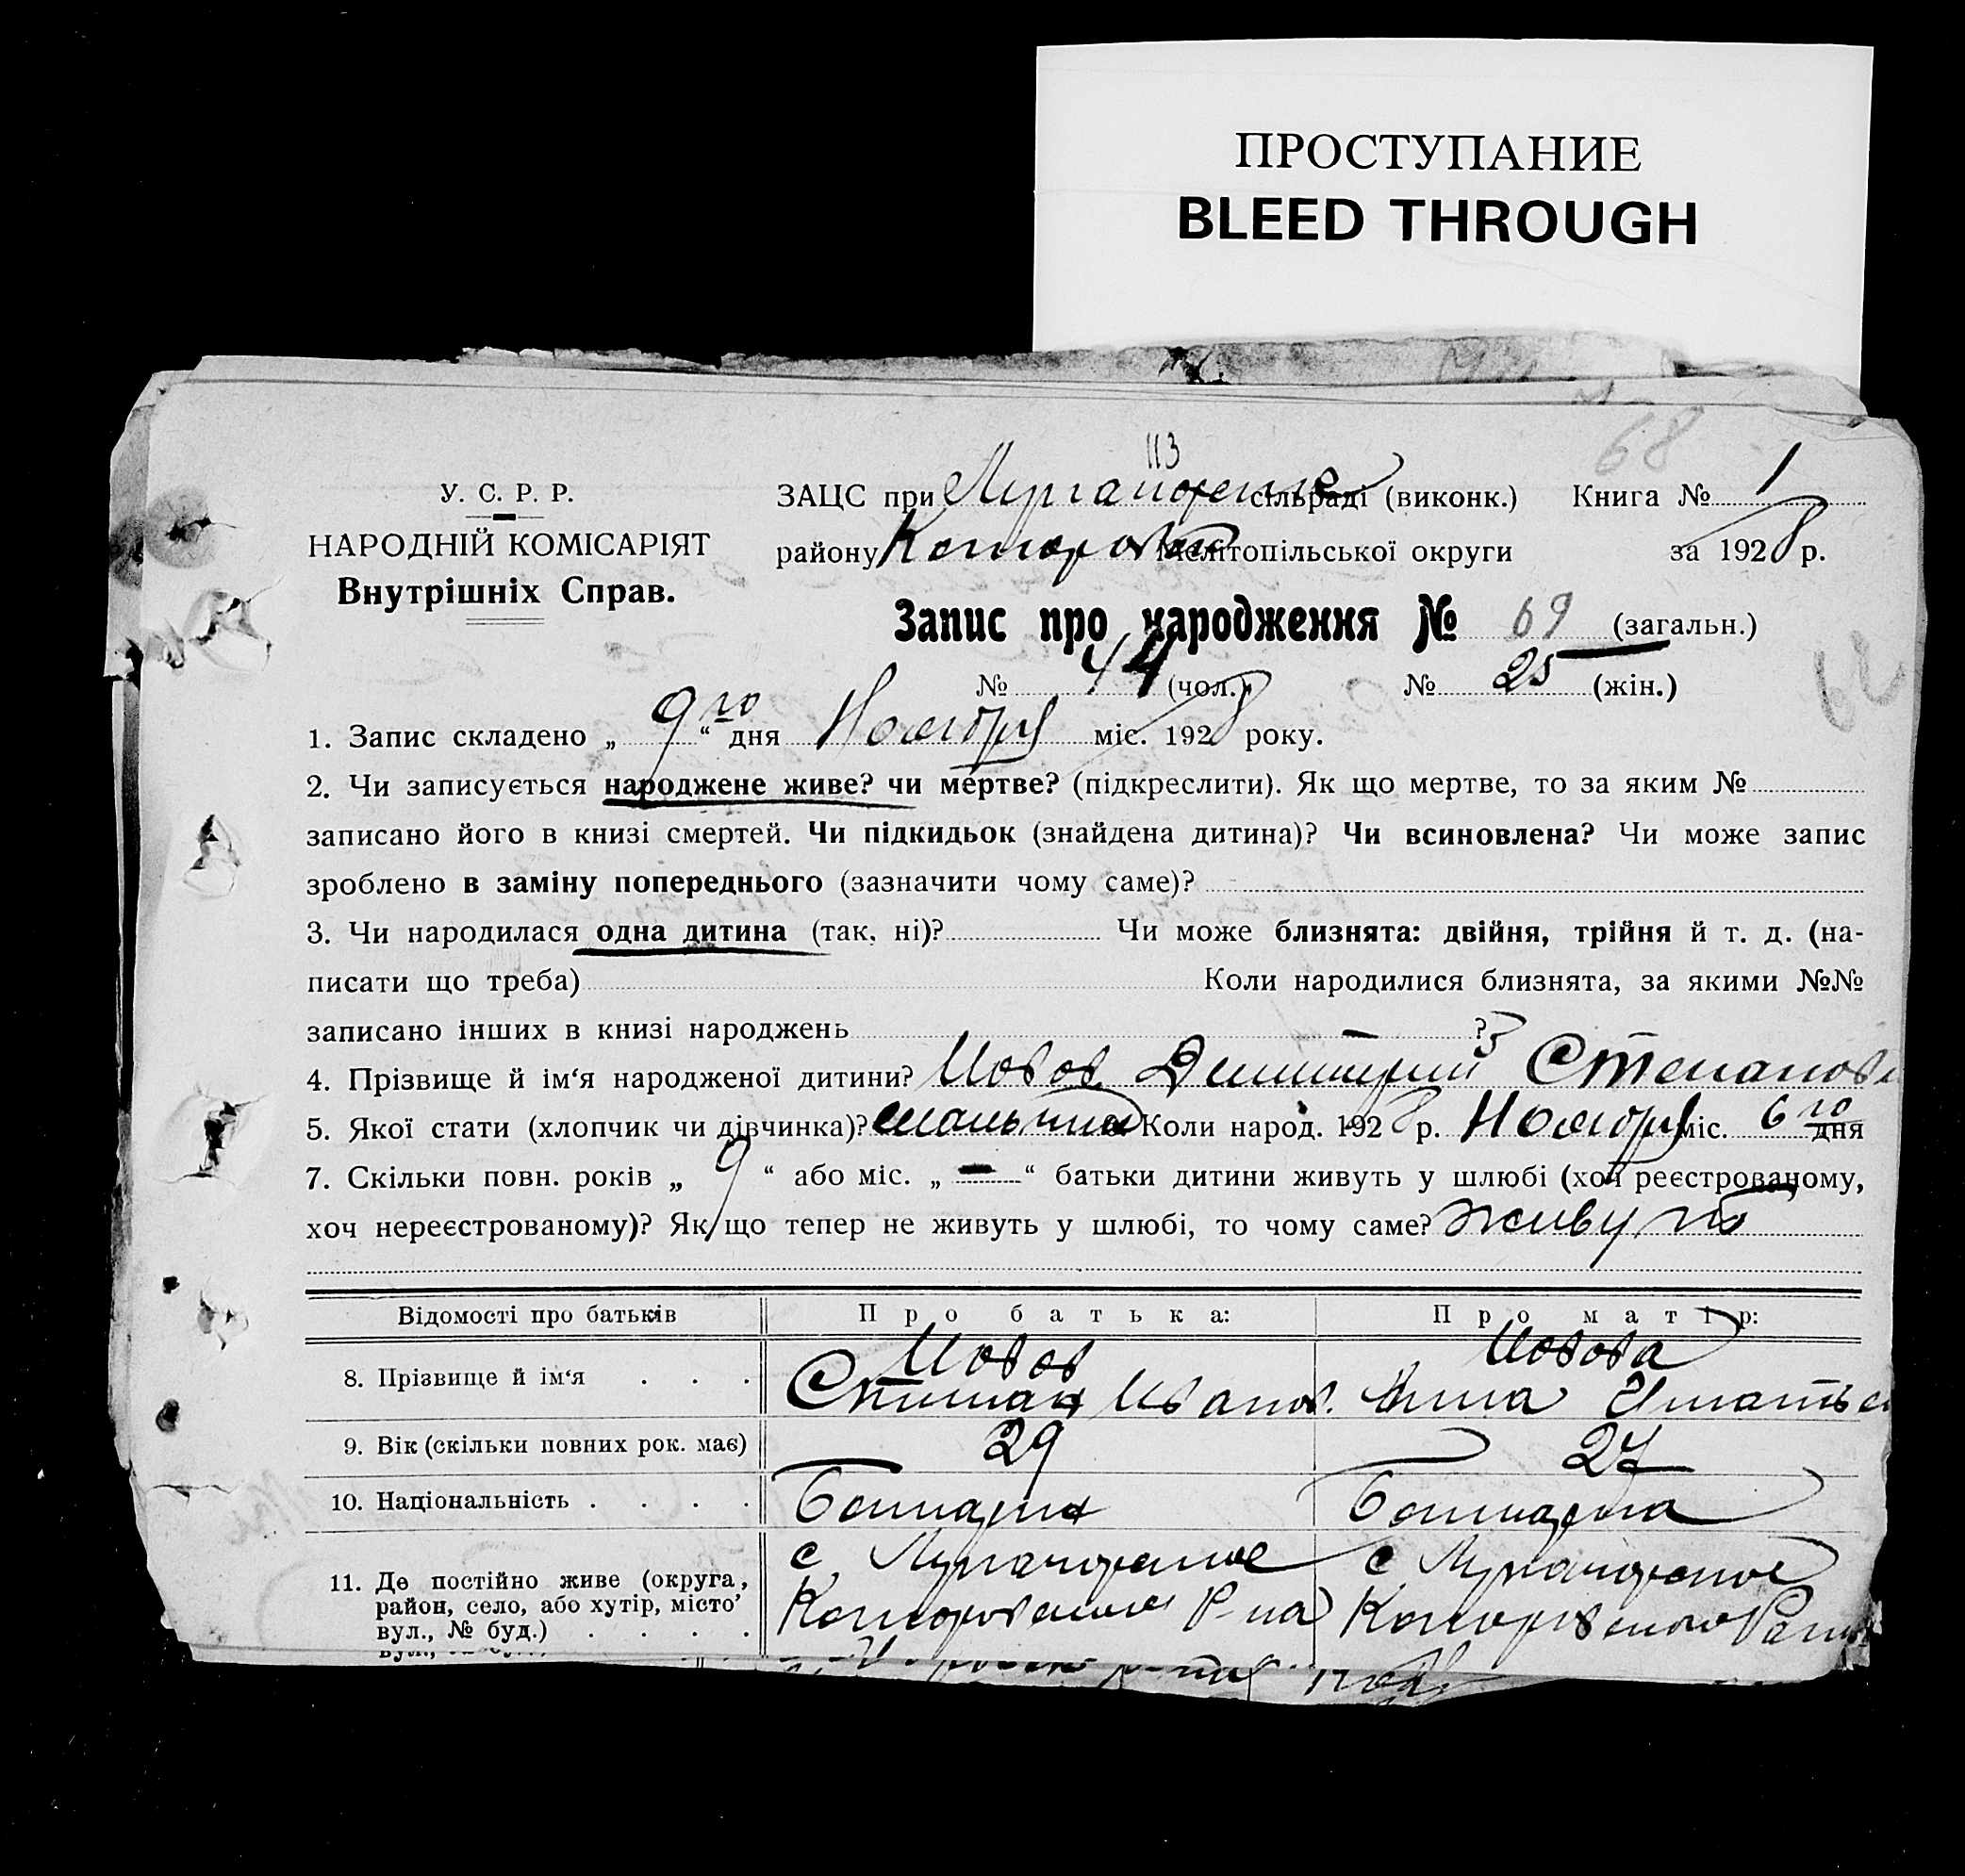 ПРОСТУПАНИЕ
BLEED THROUGH
68
113
У. С. Р. Р.
НАРОДНІЙ КОМІСАРІЯТ
Внутрішніх Справ.
ЗАЦС при сільраді (виконк.) Книга № 1
району Мелітопільської округи за 1928 р.
Запис про народження № 69 (загальн.)
№ 44 (чол.) № 25 (жін.)
1. Запис складено „ 9го “ дня Ноября міс. 1928 року.
2. Чи записується народжене живе? чи мертве? (підкреслити). Як що мертве, то за яким №
записано його в книзі смертей. Чи підкидьок (знайдена дитина)? Чи всиновлена? Чи може запис
зроблено в заміну попереднього (зазначити чому саме)?
3. Чи народилася одна дитина (так, ні)? Чи може близнята: двійня, трійня й т. д. (на-
писати що треба) Коли народилися близнята, за якими №№
записано інших в книзі народжень — ?
4. Прізвище й ім‘я народженої дитини? Иовов Димитрий Степанов
5. Якої стати (хлопчик чи дівчинка)? мальчик Коли народ. 1928 р. Ноября міс. 6го дня
7. Скільки повн. років „ 9 “ або міс. „ — “ батьки дитини живуть у шлюбі (хоч реєстрованому,
хоч нереєстрованому)? Як що тепер не живуть у шлюбі, то чому саме? живут
Відомості про батьків Про батька: Про матір:
8. Прізвище й ім‘я . . . Иовов Иовова
Степан Иванов. Анна Игнатьев
9. Вік (скільки повних рок. має) 29 27
10. Національність . . . . Болгарин Болгарка
11. Де постійно живе (округа,
район, село, або хутір, місто
вул., № буд.) . . . .